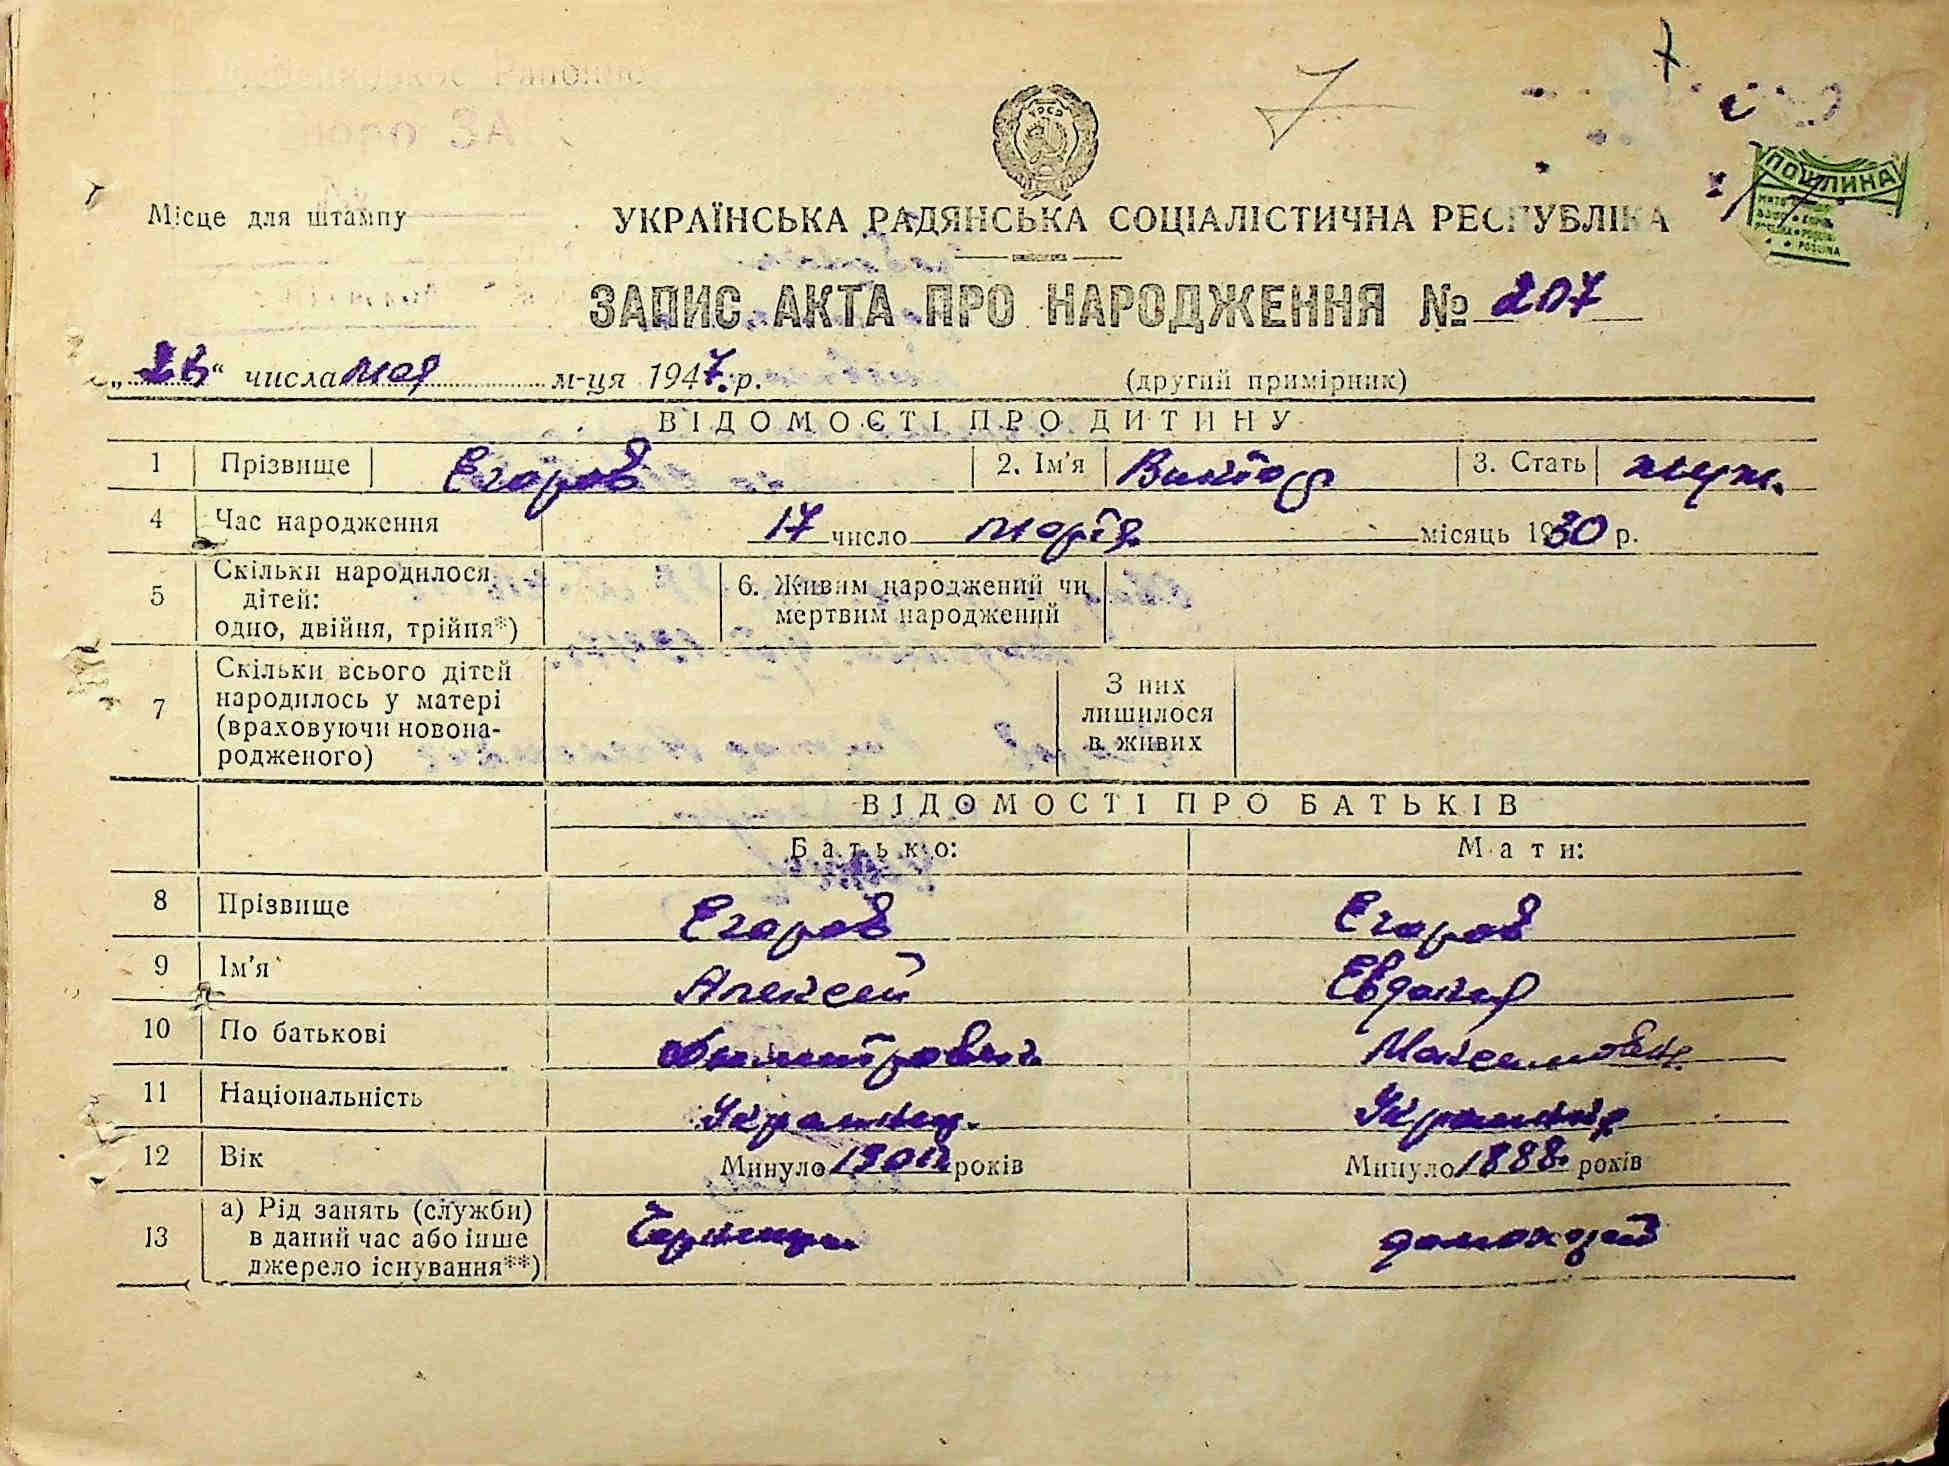 7
УРСР
ПОШЛИНА
Місце для штампу
УКРАЇНСЬКА РАДЯНСЬКА СОЦІАЛІСТИЧНА РЕСПУБЛІКА
ЗАПИС АКТА ПРО НАРОДЖЕННЯ № 207
числа мая м-ця 1947 р. (другий примірник)
ВІДОМОСТІ ПРО ДИТИНУ
1 Прізвище Егаров 2. Ім'я Виктор 3. Стать муж.
4 Час народження 17 число марта місяць 1930 р.
5 Скільки народилося дітей: одно, двійня, трійня*) 6. Живим народжений чи мертвим народжений
7 Скільки всього дітей народилось у матері (враховуючи новонародженого) З них лишилося в живих
ВІДОМОСТІ ПРО БАТЬКІВ
Батько: Мати:
8 Прізвище Егаров Егаров
9 Ім'я Алексей Евдокия
10 По батькові Дмитрович Максимовн.
11 Національність Украинец. Украинка
12 Вік Минуло років Минуло 1888. років
13 а) Рід занять (служби) в даний час або інше джерело існування**)